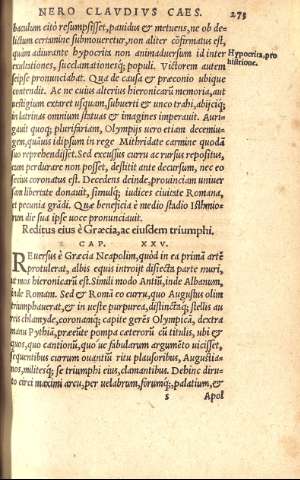 NERO CLAVDIVS CAES. 273
baculum citò resumpsisset, pauidus & metuens, ne ob de-
lictum certamine submoueretur, non aliter cõfirmatus est,
quàm adiurante hypocrita non animaduersum id inter
exultationes, succlamationesq; populi. Victorem autem
seipse pronunciabat. Qua de causa & præconio ubique
contendit. Ac ne cuius alterius hieronicarũ memoria, aut
uestigium extaret usquam, subuerti & unco trahi, abijciq;
in latrinas omnium statuas & imagines imperauit. Auri-
gauit quoq; plurifariam, Olympijs uero etiam decemiu-
gem, quàuis id ipsum in rege Mithridate carmine quodã
suo reprehendisset. Sed excussus curru ac rursus repositus,
cum perdurare non posset, destitit ante decursum, nec eo
secius coronatus est. Decedens deinde, prouinciam uniuer
sam libertate donauit, simulq; iudices ciuitate Romana,
et pecunia grãdi. Quæ beneficia è medio stadio Isthmio-
rum die sua ipse uoce pronunciauit.
Hypocrita, pro
histrione.
Reditus eius è Græcia, ac eiusdem triumphi.
CAP. XXV.
REuersus è Græcia Neapolim, quòd in ea primã artẽ
protulerat, albis equis introijt disiecta parte muri,
ut mos hieronicarũ est. Simili modo Antiũ, inde Albanum,
inde Romam. Sed & Romã eo curru, quo Augustus olim
triumphauerat, & in ueste purpurea, distinctaq; stellis au
rea chlamyde, coronamq; capite gerẽs Olympicã, dextra
manu Pythiã, præeũte pompa cæterorũ cũ titulis, ubi &
quos, quo cantionũ, quo ue fabularum argumẽto uicisset,
sequentibus currum ouantiũ ritu plausoribus, Augustia-
nos, militesq; se triumphi eius, clamantibus. Dehinc diru-
to circi maximi arcu, per uelabrum, forumq;, palatium, &
s Apol